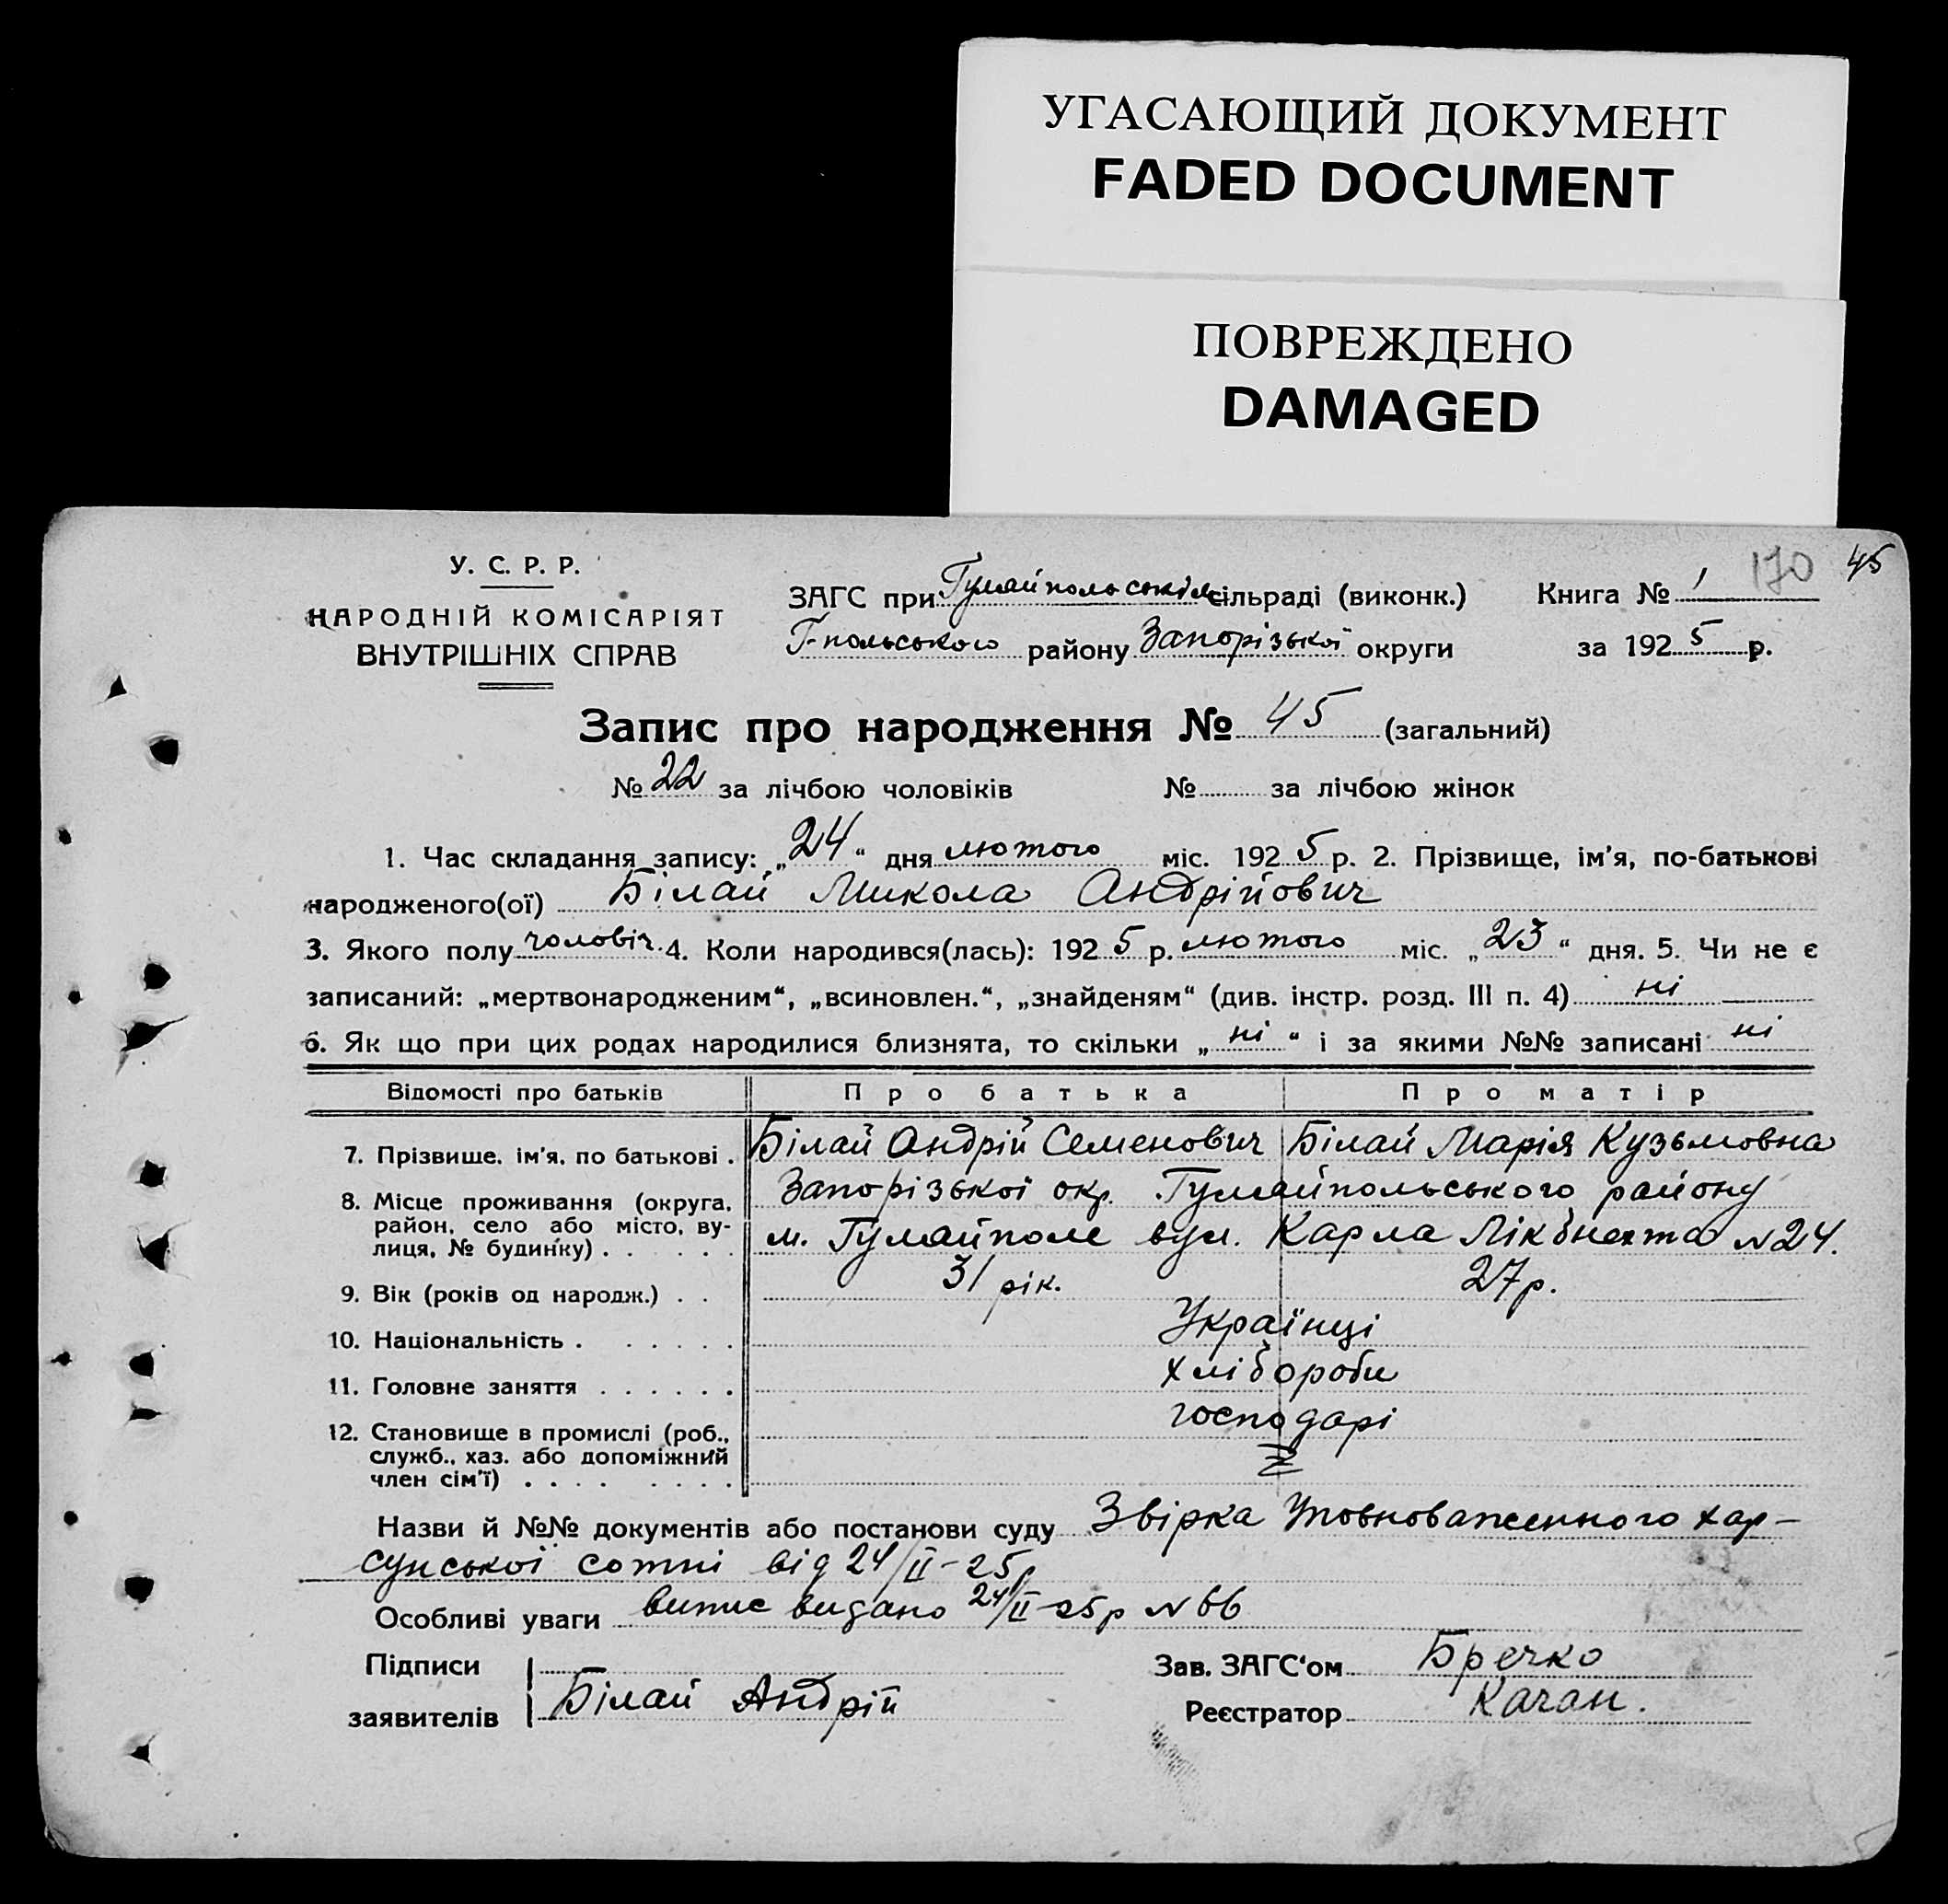 УГАСАЮЩИЙ ДОКУМЕНТ
FADED DOCUMENT
ПОВРЕЖДЕНО
DAMAGED
170 45
У. С. Р. Р.
НАРОДНІЙ КОМІСАРІЯТ
ВНУТРІШНІХ СПРАВ
ЗАГС при Гуляйпольськім сільраді (виконк.)
Г-польського району Запорізької округи
Книга № 1
за 1925 р.
Запис про народження № 45 (загальний)
№ 22 за лічбою чоловіків № за лічбою жінок
1. Час складання запису: „24“ дня лютого міс. 1925 р. 2. Прізвище, ім’я, по-батькові
народженого(ої) Білай Микола Андрійович
3. Якого полу чоловіч. 4. Коли народився(лась): 1925 р. лютого міс. „23“ дня. 5. Чи не є
записаний: „мертвонародженим“, „всиновлен.“, „знайденям“ (див. інстр. розд. III п. 4) ні
6. Як що при цих родах народилися близнята, то скільки „ні“ і за якими №№ записані ні
Відомості про батьків Про батька Про матір
7. Прізвище, ім’я, по батькові . Білай Андрій Семенович Білай Марія Кузьмовна
8. Місце проживання (округа, район, село або місто, вулиця, № будинку) . . . . . Запорізької окр. Гуляйпольського району
м. Гуляйполе вул. Карла Лікбнехта №24.
9. Вік (років од народж.) . . 31 рік. 27 р.
10. Національність . . . . . . Українці
11. Головне заняття . . . . . . хлібороби
12. Становище в промислі (роб., служб., хаз. або допоміжний член сім’ї) . . . . . . . . господарі
Назви й №№ документів або постанови суду Звірка Уповноваженного хар-
сунської сотні від 24/II-25р
Особливі уваги випис видано 24/II-25р №66
Підписи
заявителів Білай Андрій
Зав. ЗАГС‘ом Бречко
Реєстратор Качан.